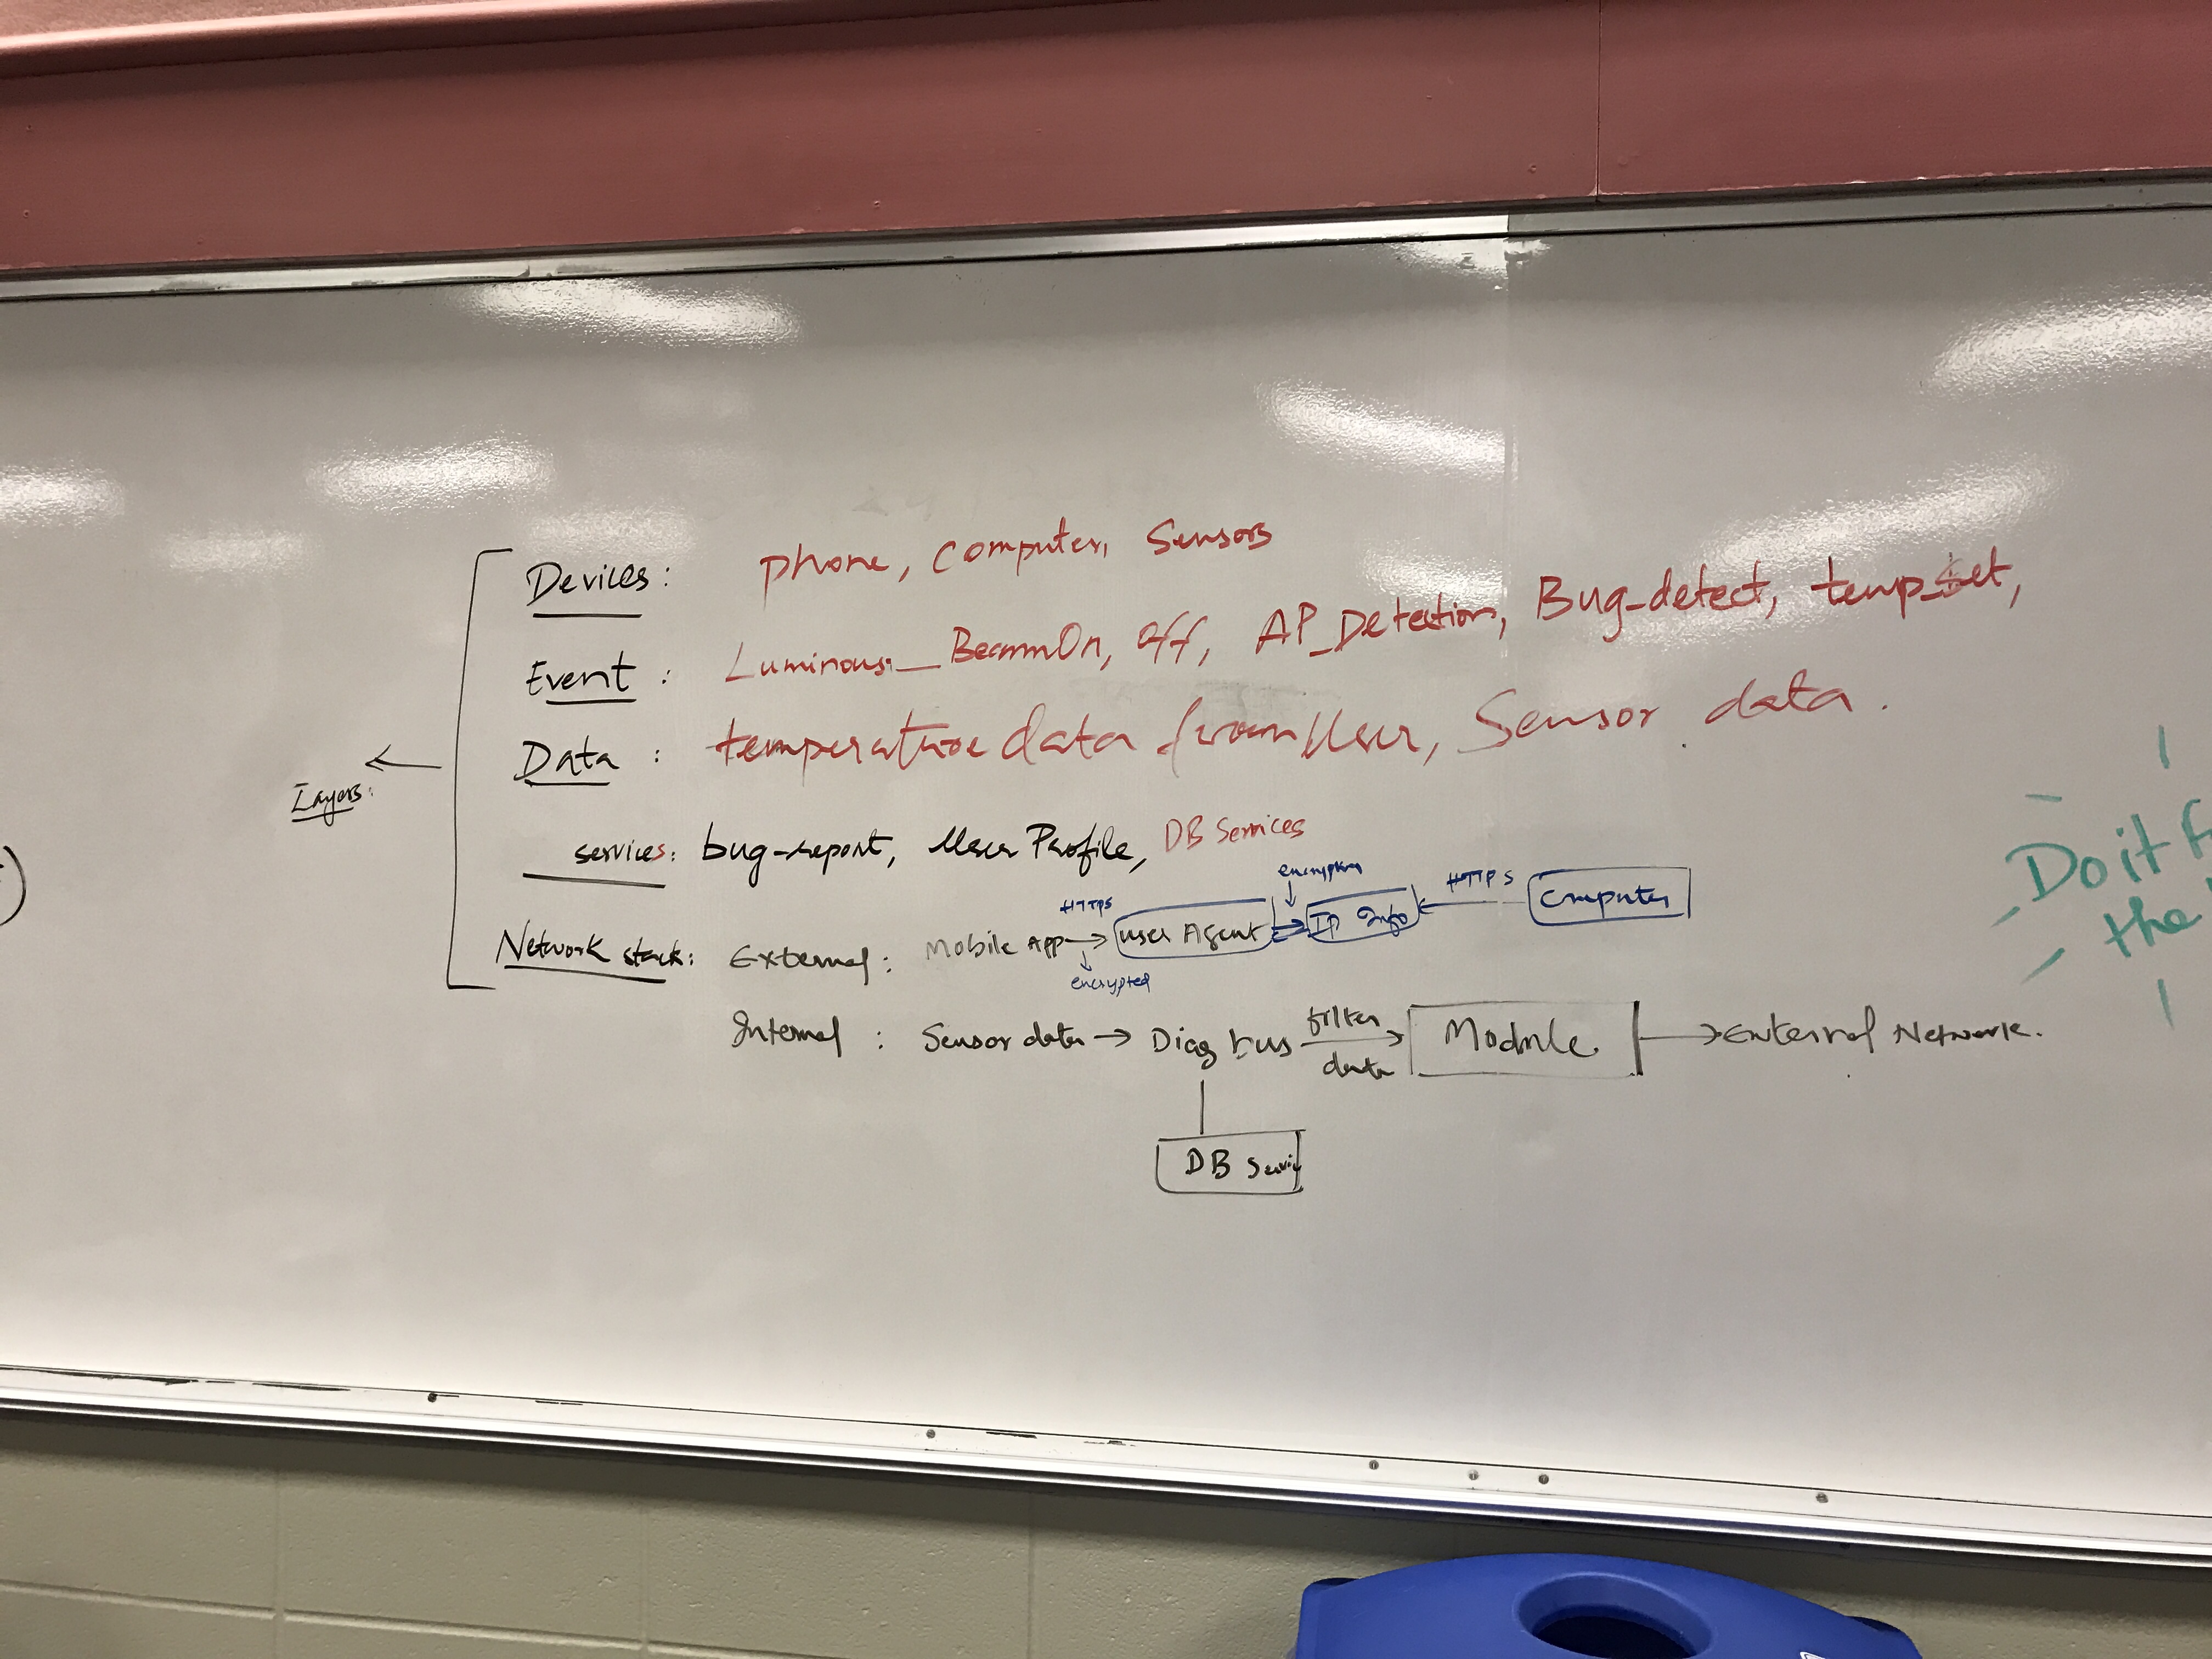 Devices: phone, computer, Sensors
Event : Luminous_BeamOn, off, AP_Detection, Bug_detect, temp_set,
Data : temperature data from User, Sensor data.
Layers:
services: bug-report, User Profile, DB Services
encryption
HTTPS
HTTPS
Network stack: External: Mobile App → User Agent IP Info Computer
encrypted
Internal : Sensor data → Diag bus filter data Module → External Network.
DB Servi
Do it f
the